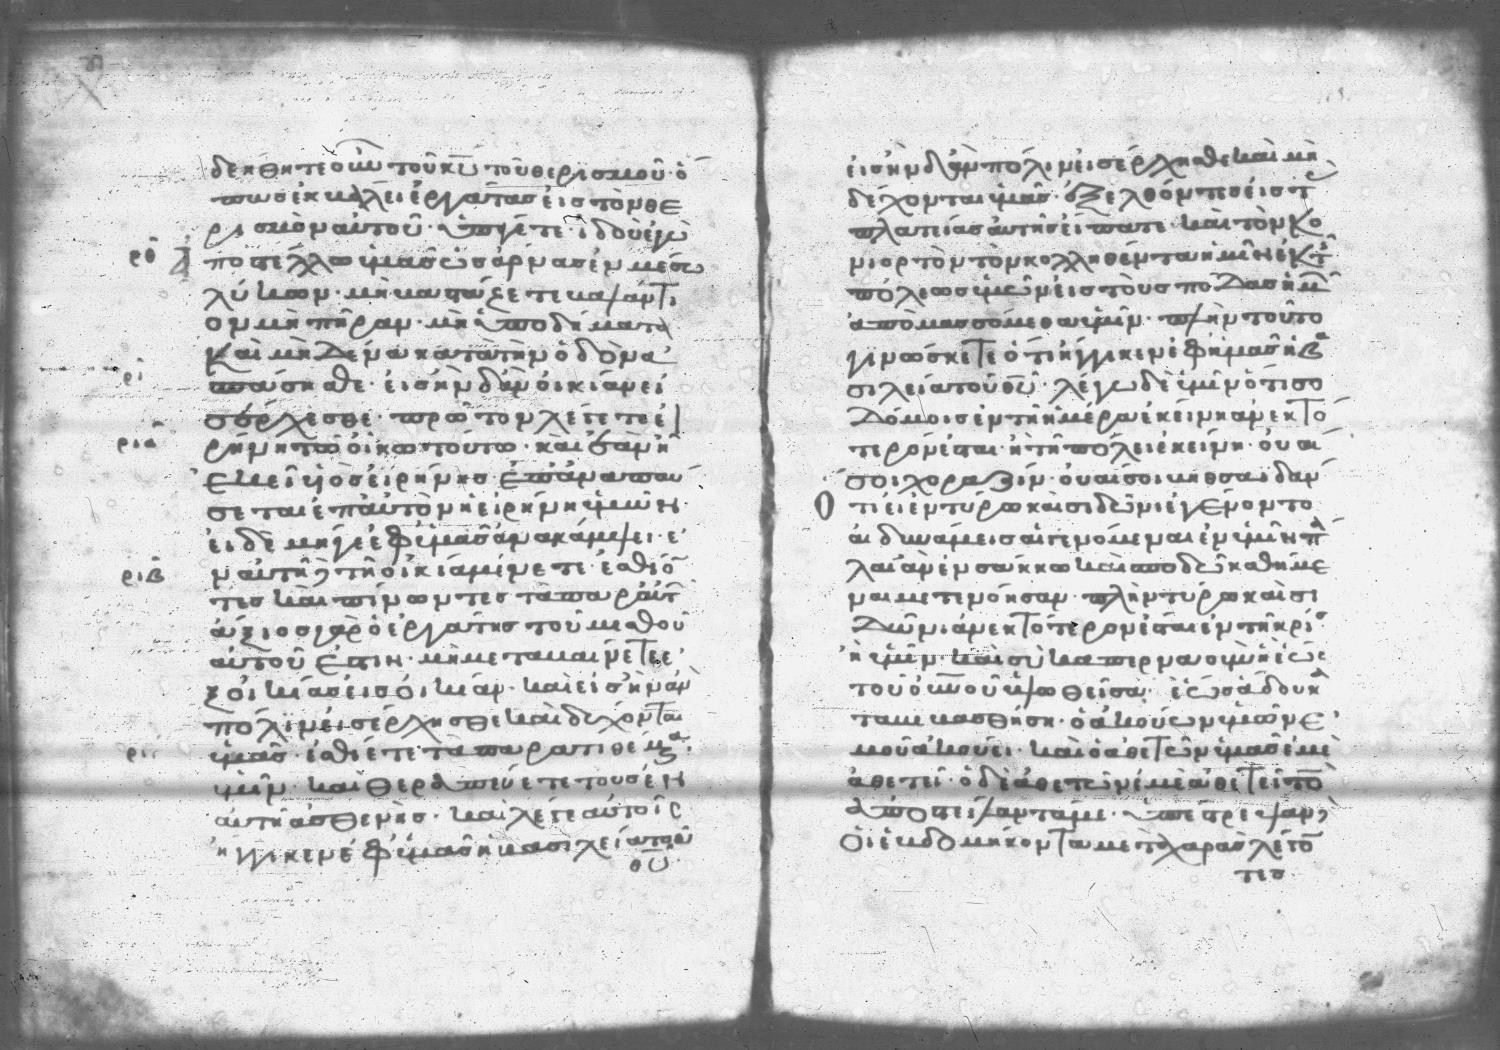 δεήθητε οὖν τοῦ κυ τοῦ θερισμοῦ ὁ
πως ἐκβάλλει ἐργάτας εἰς τὸν θε
ρισμὸν αὐτοῦ· ὑπάγετε· ἰδοὺ ἐγὼ
ρθ ποστέλλω ὑμᾶς ὡς ἄρνας ἐν μέσω
λύκων· μὴ βαστάζετε βαλάντι
ον μὴ πήραν· μὴ ὑποδήματα
καὶ μηδένα κατὰ τὴν ὁδὸν ἀ
ρι σπάσησθε· εἰς ἣν δ᾽ἂν οἰκίαν εἰ
σέρχεσθε· πρῶτον λέγετε εἰ
ρια ρήνη τῶ οἴκω τούτω· καὶ ἐὰν ἦ
ἐκεῖ υἱὸς εἰρήνης ἐπαναπαύ
σεται ἐπ᾽αὐτὸν ἡ εἰρήνη ὑμῶν·
εἰ δὲ μήγε ἐφ᾽ὑμᾶς ἀνακάμψει· ἐ
ριβ ν αὐτῆ τῆ οἰκία μένετε· ἐσθίο
τες καὶ πίνωντες τὰ παρ᾽αὐτ
ἄξιος γὰρ ὁ ἐργάτης τοῦ μισθοῦ
αὐτοῦ ἐστιν· μὴ μεταβαίνετε ἐ
ξ οἰκίας εἰς οἰκίαν· καὶ εἰς ἣν ἂν
πόλιν εἰσέρχησθε καὶ δέχονται
ριγ ὑμᾶς· ἐσθίετε τὰ παρατιθέμενα
ὑμῖν· καὶ θεραπεύετε τοὺς ἐν
αὐτῆ ἀσθενῆς· καὶ λέγετε αὐτοῖς
ἤγγικεν ἐφ᾽ὑμᾶς ἡ βασιλεία τοῦ
θυ
εἰς ἣν δ᾽ἂν πόλιν εἰσέρχησθε καὶ μὴ
δέχονται ὑμᾶς· ἐξελθόντες εἰς τ
πλατείας αὐτῆς εἴπατε· καὶ τὸν κο
νιορτὸν τὸν κολληθέντα ἡμῖν ἐκ τ
πόλεως ὑμῶν εἰς τοὺς πόδας ἡμ
ἀπομασσόμεθα ὑμῖν· πλὴν τοῦτο
γινώσκετε ὅτι ἤγγικεν ἐφ᾽ἡμᾶς ἡ βα
σιλεία τοῦ θυ· λέγω δὲ ὑμῖν ὅτι σο
δόμοις ἐν τῆ ἡμέρα ἐκείνη ἀνεκτό
τερον ἔσται· ἢ τῆ πόλει ἐκείνη· οὐαί
σοι χοραζίν· οὐαί σοι βηθσαιδάν
τι εἰ ἐν τύρω καὶ σιδῶνι ἐγένοντο
αἱ δυνάμεις αἱ γενόμεναι ἐν ὑμῖν π
λαι ἂν ἐν σάκκω καὶ σποδῶ καθήμε
ναι μετενόησαν· πλὴν τύρω καὶ σι
δῶνι ἀνεκτότερον ἔσται ἐν τῆ κρί
ἢ ὑμῖν· καὶ σὺ καπερναοὺμ ἡ ἕως
τοῦ οὐνοῦ ὑψωθεῖσα· ἕως ἅδου κα
ταβιβασθήση· ὁ ἀκούων ὑμῶν ἐ
μοῦ ἀκούει· καὶ ὁ ἀθετῶν ὑμᾶς ἐμὲ
ἀθετεῖ· ὁ δὲ ἀθετῶν ἐμὲ ἀθετεῖ τὸ
ἀποστείλαντά με· ὑπέστρεψαν
οἱ ἑβδομήκοντα μετὰ χαρᾶς λέγο
τες